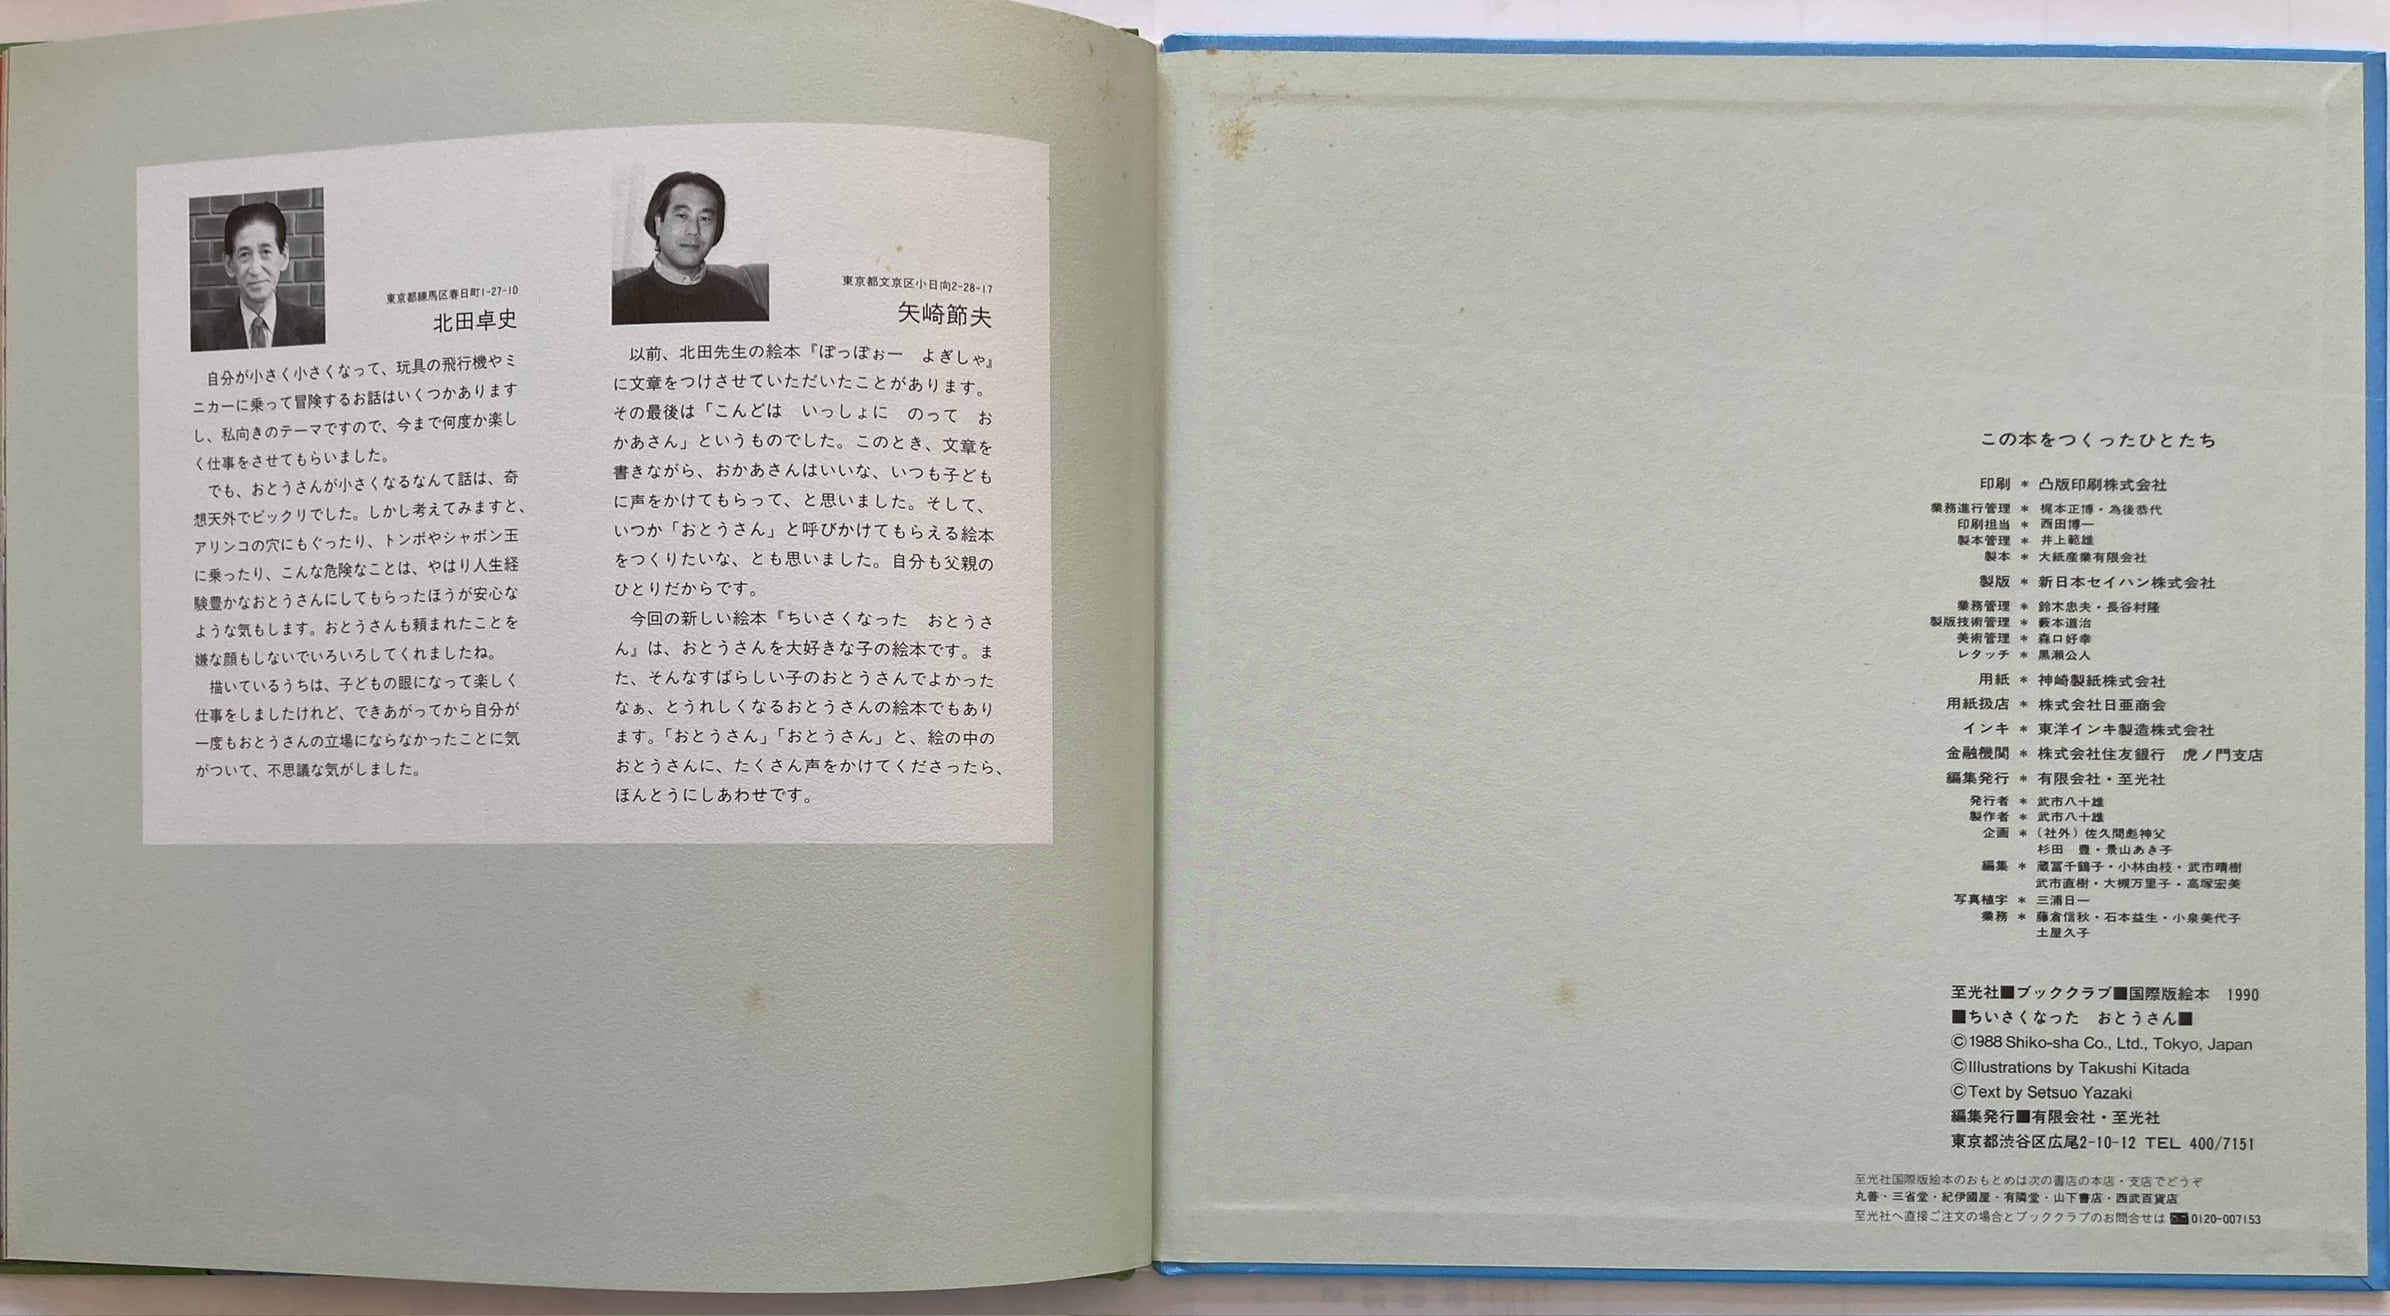 東京都練馬区春日町1-27-10
北田卓史
自分が小さく小さくなって、玩具の飛行機やミ
ニカーに乗って冒険するお話はいくつかあります
し、私向きのテーマですので、今まで何度か楽し
く仕事をさせてもらいました。
でも、おとうさんが小さくなるなんて話は、奇
想天外でビックリでした。しかし考えてみますと、
アリンコの穴にもぐったり、トンボやシャボン玉
に乗ったり、こんな危険なことは、やはり人生経
験豊かなおとうさんにしてもらったほうが安心な
ような気もします。おとうさんも頼まれたことを
嫌な顔もしないでいろいろしてくれましたね。
描いているうちは、子どもの眼になって楽しく
仕事をしましたけれど、できあがってから自分が
一度もおとうさんの立場にならなかったことに気
がついて、不思議な気がしました。
東京都文京区小日向2-28-17
矢崎節夫
以前、北田先生の絵本『ぽっぽぉー　よぎしゃ』
に文章をつけさせていただいたことがあります。
その最後は「こんどは　いっしょに　のって　お
かあさん」というものでした。このとき、文章を
書きながら、おかあさんはいいな、いつも子ども
に声をかけてもらって、と思いました。そして、
いつか「おとうさん」と呼びかけてもらえる絵本
をつくりたいな、とも思いました。自分も父親の
ひとりだからです。
今回の新しい絵本『ちいさくなった　おとうさ
ん』は、おとうさんを大好きな子の絵本です。ま
た、そんなすばらしい子のおとうさんでよかった
なぁ、とうれしくなるおとうさんの絵本でもあり
ます。「おとうさん」「おとうさん」と、絵の中の
おとうさんに、たくさん声をかけてくださったら、
ほんとうにしあわせです。
この本をつくったひとたち
印刷＊凸版印刷株式会社
業務進行管理＊梶本正博・為後恭代
印刷担当＊西田博一
製本管理＊井上範雄
製本＊大紙産業有限会社
製版＊新日本セイハン株式会社
業務管理＊鈴木忠夫・長谷村隆
製版技術管理＊藪本道治
美術管理＊森口好幸
レタッチ＊黒瀬公人
用紙＊神崎製紙株式会社
用紙扱店＊株式会社日亜商会
インキ＊東洋インキ製造株式会社
金融機関＊株式会社住友銀行　虎ノ門支店
編集発行＊有限会社・至光社
発行者＊武市八十雄
製作者＊武市八十雄
企画＊（社外）佐久間彪神父
杉田　豊・景山あき子
編集＊蔵冨千鶴子・小林由枝・武市晴樹
武市直樹・大槻万里子・高塚宏美
写真植字＊三浦日一
業務＊藤倉信秋・石本益生・小泉美代子
土屋久子
至光社■ブッククラブ■国際版絵本　1990
■ちいさくなった　おとうさん■
©1988 Shiko-sha Co., Ltd., Tokyo, Japan
©Illustrations by Takushi Kitada
©Text by Setsuo Yazaki
編集発行■有限会社・至光社
東京都渋谷区広尾2-10-12 TEL 400/7151
至光社国際版絵本のおもとめは次の書店の本店・支店でどうぞ
丸善・三省堂・紀伊國屋・有隣堂・山下書店・西武百貨店
至光社へ直接ご注文の場合とブッククラブのお問合せは 0120-007153